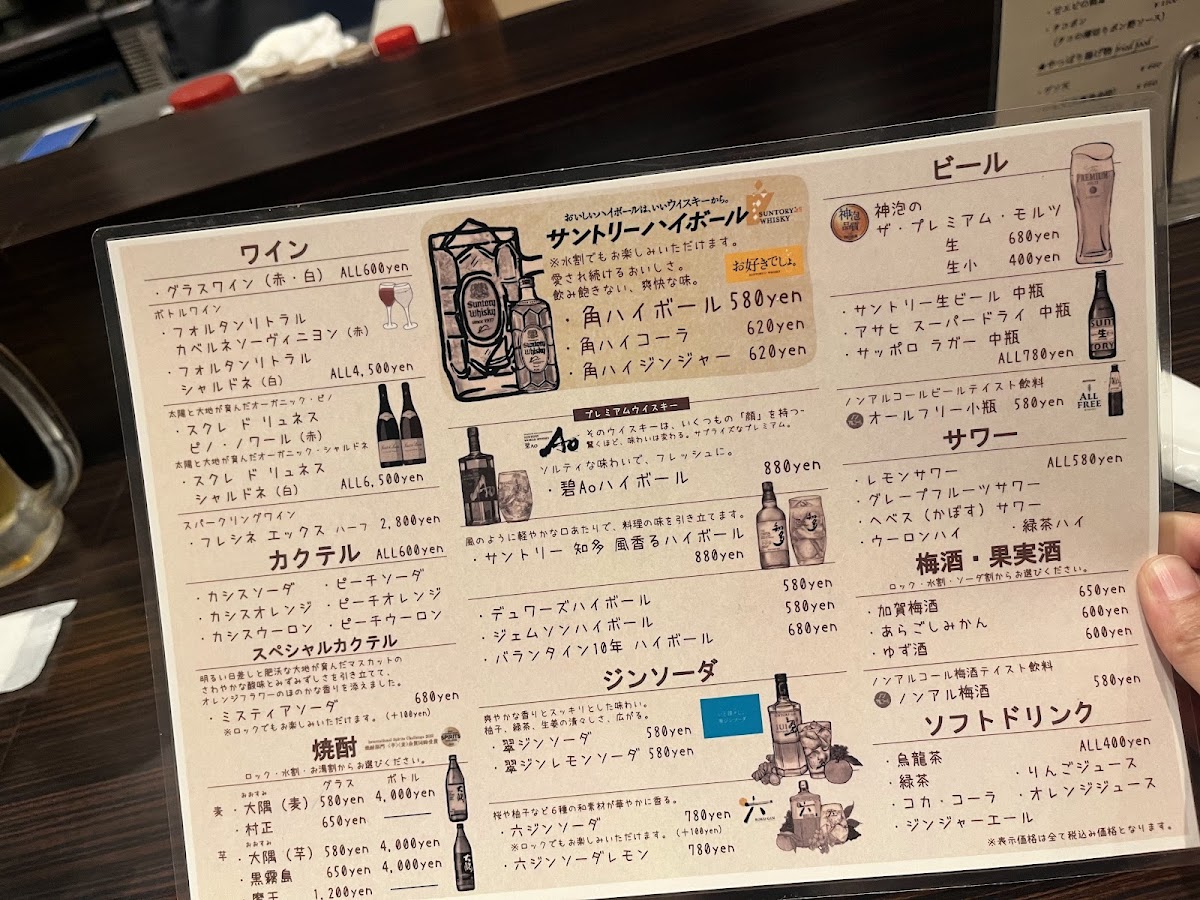 ワイン
・グラスワイン（赤・白） ALL600yen
ボトルワイン
・フォルタンリトラル
カベルネソーヴィニヨン（赤）
・フォルタンリトラル
シャルドネ（白） ALL4,500yen
太陽と大地が育んだオーガニック・ピノ
・スクレ ド リュネス
ピノ・ノワール（赤）
太陽と大地が育んだオーガニック・シャルドネ
・スクレ ド リュネス
シャルドネ（白） ALL6,500yen
スパークリングワイン
・フレシネ エックス ハーフ 2,800yen
カクテル ALL600yen
・カシスソーダ ・ピーチソーダ
・カシスオレンジ ・ピーチオレンジ
・カシスウーロン ・ピーチウーロン
スペシャルカクテル
明るい日差しと肥沃な大地が育んだマスカットの
さわやかな酸味とみずみずしさを引き立てて、
オレンジフラワーのほのかな香りを添えました。
・ミスティアソーダ 680yen
※ロックでもお楽しみいただけます。（+100yen）
焼酎
ロック・水割・お湯割からお選びください。
グラス ボトル
おおすみ
麦 ・大隅（麦） 580yen 4,000yen
・村正 650yen
おおすみ
芋 ・大隅（芋） 580yen 4,000yen
・黒霧島 650yen 4,000yen
魔王 1,200yen
おいしいハイボールは、いいウイスキーから。
サントリーハイボール
SUNTORY
WHISKY
※水割でもお楽しみいただけます。
愛され続けるおいしさ。
飲み飽きない、爽快な味。
お好きでしょ。
Suntory
Whisky
・角ハイボール 580yen
・角ハイコーラ 620yen
・角ハイジンジャー 620yen
プレミアムウイスキー
Ao
そのウイスキーは、いくつもの「顔」を持つ-
驚くほど、味わいは変わる。サプライズなプレミアム。
ソルティな味わいで、フレッシュに。
・碧Aoハイボール 880yen
風のように軽やかな口あたりで、料理の味を引き立てます。
・サントリー 知多 風香るハイボール
880yen
知多
・デュワーズハイボール 580yen
・ジェムソンハイボール 580yen
・バランタイン10年 ハイボール 680yen
ジンソーダ
爽やかな香りとスッキリとした味わい。
柚子、緑茶、生姜の清々しさ、広がる。
・翠ジンソーダ 580yen
・翠ジンレモンソーダ 580yen
桜や柚子など6種の和素材が華やかに香る。
・六ジンソーダ 780yen
※ロックでもお楽しみいただけます。（+100yen）
・六ジンソーダレモン 780yen
六
ビール
神泡
品質
神泡の
ザ・プレミアム・モルツ
生 680yen
生小 400yen
PREMIUM
・サントリー生ビール 中瓶
・アサヒ スーパードライ 中瓶
・サッポロ ラガー 中瓶
ALL780yen
ノンアルコールビールテイスト飲料
オールフリー小瓶 580yen
ALL
FREE
サワー
ALL580yen
・レモンサワー
・グレープフルーツサワー
・ヘベス（かぼす）サワー
・ウーロンハイ ・緑茶ハイ
梅酒・果実酒
ロック・水割・ソーダ割からお選びください。
・加賀梅酒 650yen
・あらごしみかん 600yen
・ゆず酒 600yen
ノンアルコール梅酒テイスト飲料
ノンアル梅酒 580yen
ソフトドリンク
ALL400yen
・烏龍茶
・緑茶 ・りんごジュース
・コカ・コーラ ・オレンジジュース
・ジンジャーエール
※表示価格は全て税込み価格となります。
・タコポン
（タコの薄切りポン酢ソース）
★やっぱり揚げ物 fried food
・ゲソ天